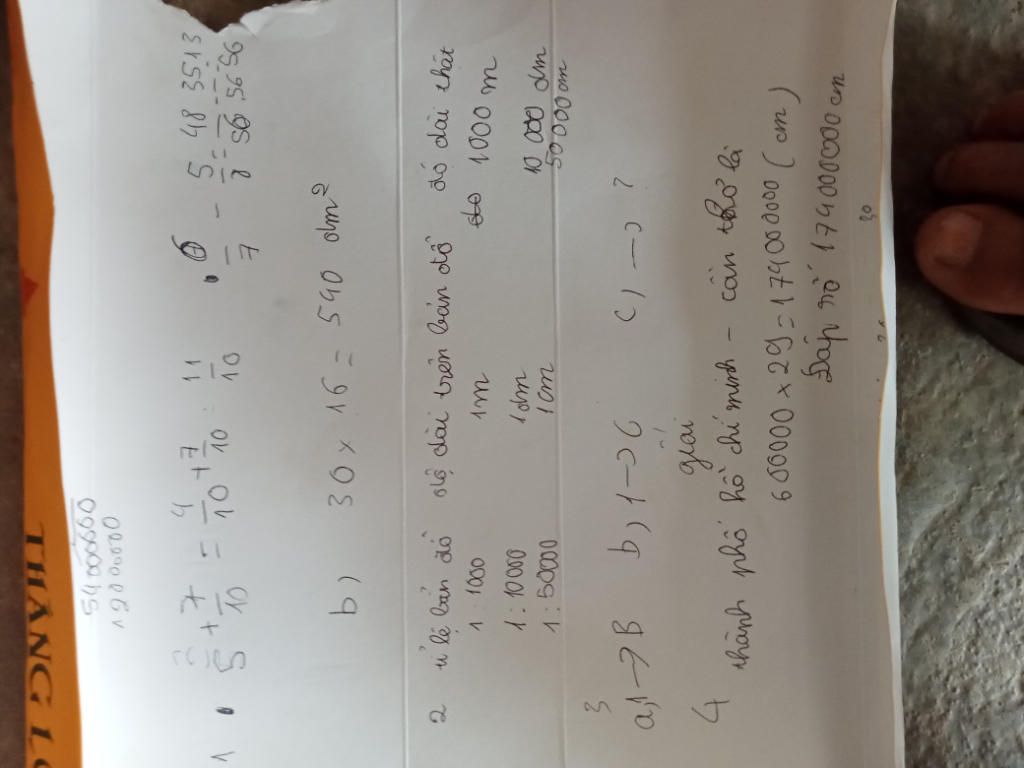 THĂNG L
54000000
12000000
1 . 2/5 + 7/10 = 4/10 + 7/10 . 11/10 . 6/7 - 5/8 = 48/56 . 35/56 . 13/56
b) 30 x 16 = 540 dm²
2 tỉ lệ bản đồ độ dài trên bản đồ độ dài thật
1 : 1000 1m 1000 m
1 : 10000 1dm 10 000 dm
1 : 50000 1cm 50000cm
3
a, 1 → B b, 1 → C c, → ?
4 giải
thành phố hồ chí minh - cần thơ là
600000 x 29 = 17400000 (cm)
Đáp số 17400000000 cm